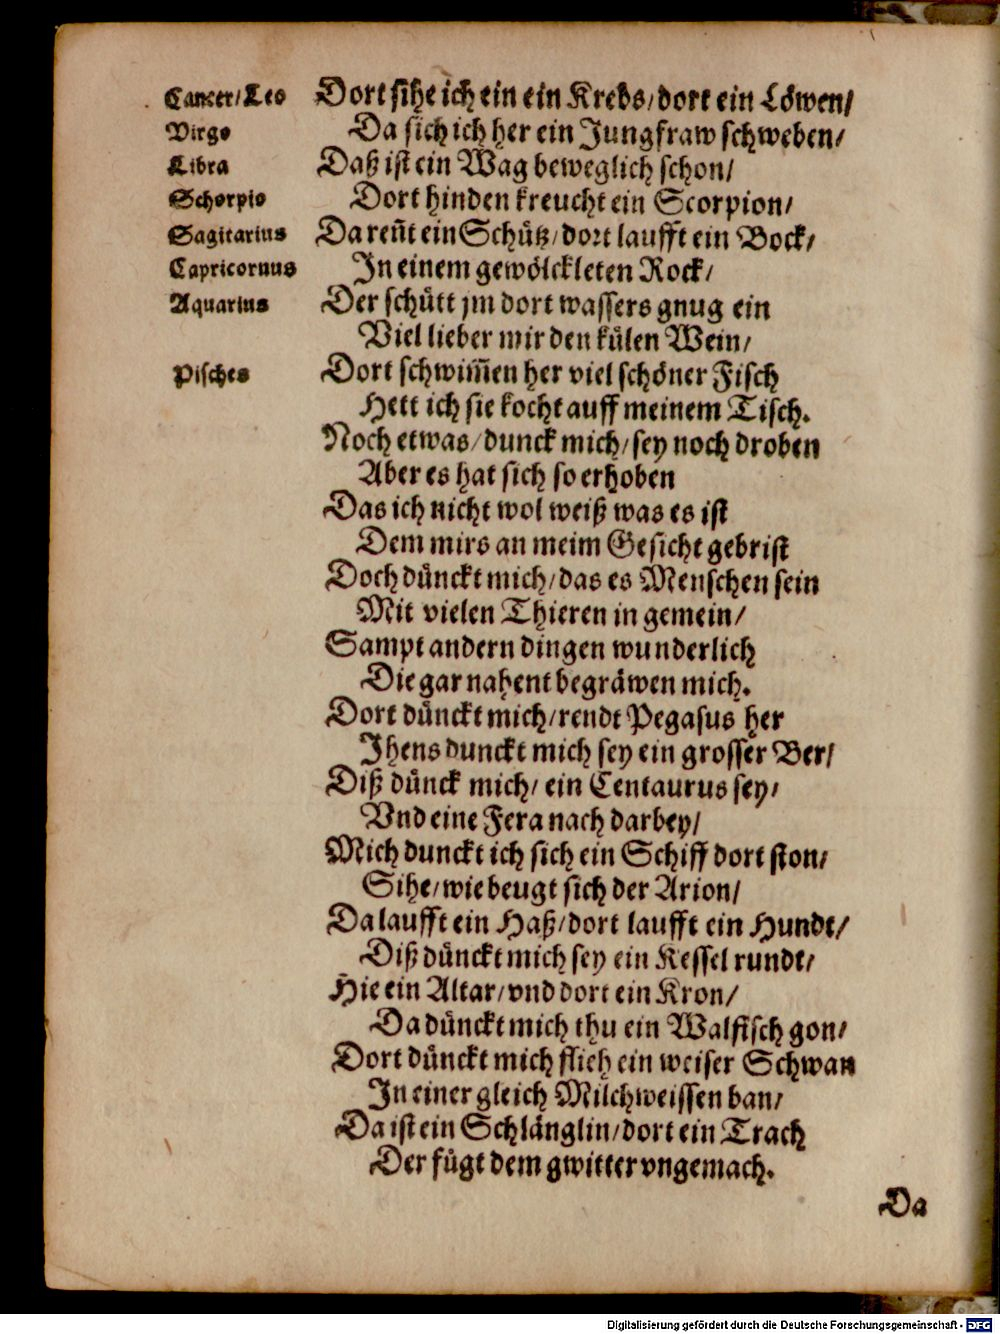 Cancer/Leo Dort sihe ich ein ein Krebs/dort ein Löwen/
Virgo Da sich ich her ein Jungfraw schweben/
Libra Daß ist ein Wag beweglich schon/
Schorpio Dort hinden kreucht ein Scorpion/
Sagitarius Da reñt ein Schütz/dort laufft ein Bock/
Capricornus In einem gewölckleten Rock/
Aquarius Der schütt jm dort wassers gnug ein
Viel lieber mir den külen Wein/
Pisches Dort schwim̃en her viel schöner Fisch
Hett ich sie kocht auff meinem Tisch.
Noch etwas/dunck mich/sey noch droben
Aber es hat sich so erhoben
Das ich nicht wol weiß was es ist
Dem mirs an meim Gesicht gebrist
Doch dünckt mich/das es Menschen sein
Mit vielen Thieren in gemein/
Sampt andern dingen wunderlich
Die gar nahent begräwen mich.
Dort dünckt mich/rendt Pegasus her
Jhens dunckt mich sey ein grosser Ber/
Diß dünck mich/ein Centaurus sey/
Vnd eine Fera nach darbey/
Mich dunckt ich sich ein Schiff dort ston/
Sihe/wie beugt sich der Arion/
Da laufft ein Haß/dort laufft ein Hundt/
Diß dünckt mich sey ein Kessel rundt/
Hie ein Altar/vnd dort ein Kron/
Da dünckt mich thu ein Walfisch gon/
Dort dünckt mich flieh ein weiser Schwan
In einer gleich Milchweissen ban/
Da ist ein Schlänglin/dort ein Trach
Der fügt dem gwitter vngemach.
Da
Digitalisierung gefördert durch die Deutsche Forschungsgemeinschaft - DFG